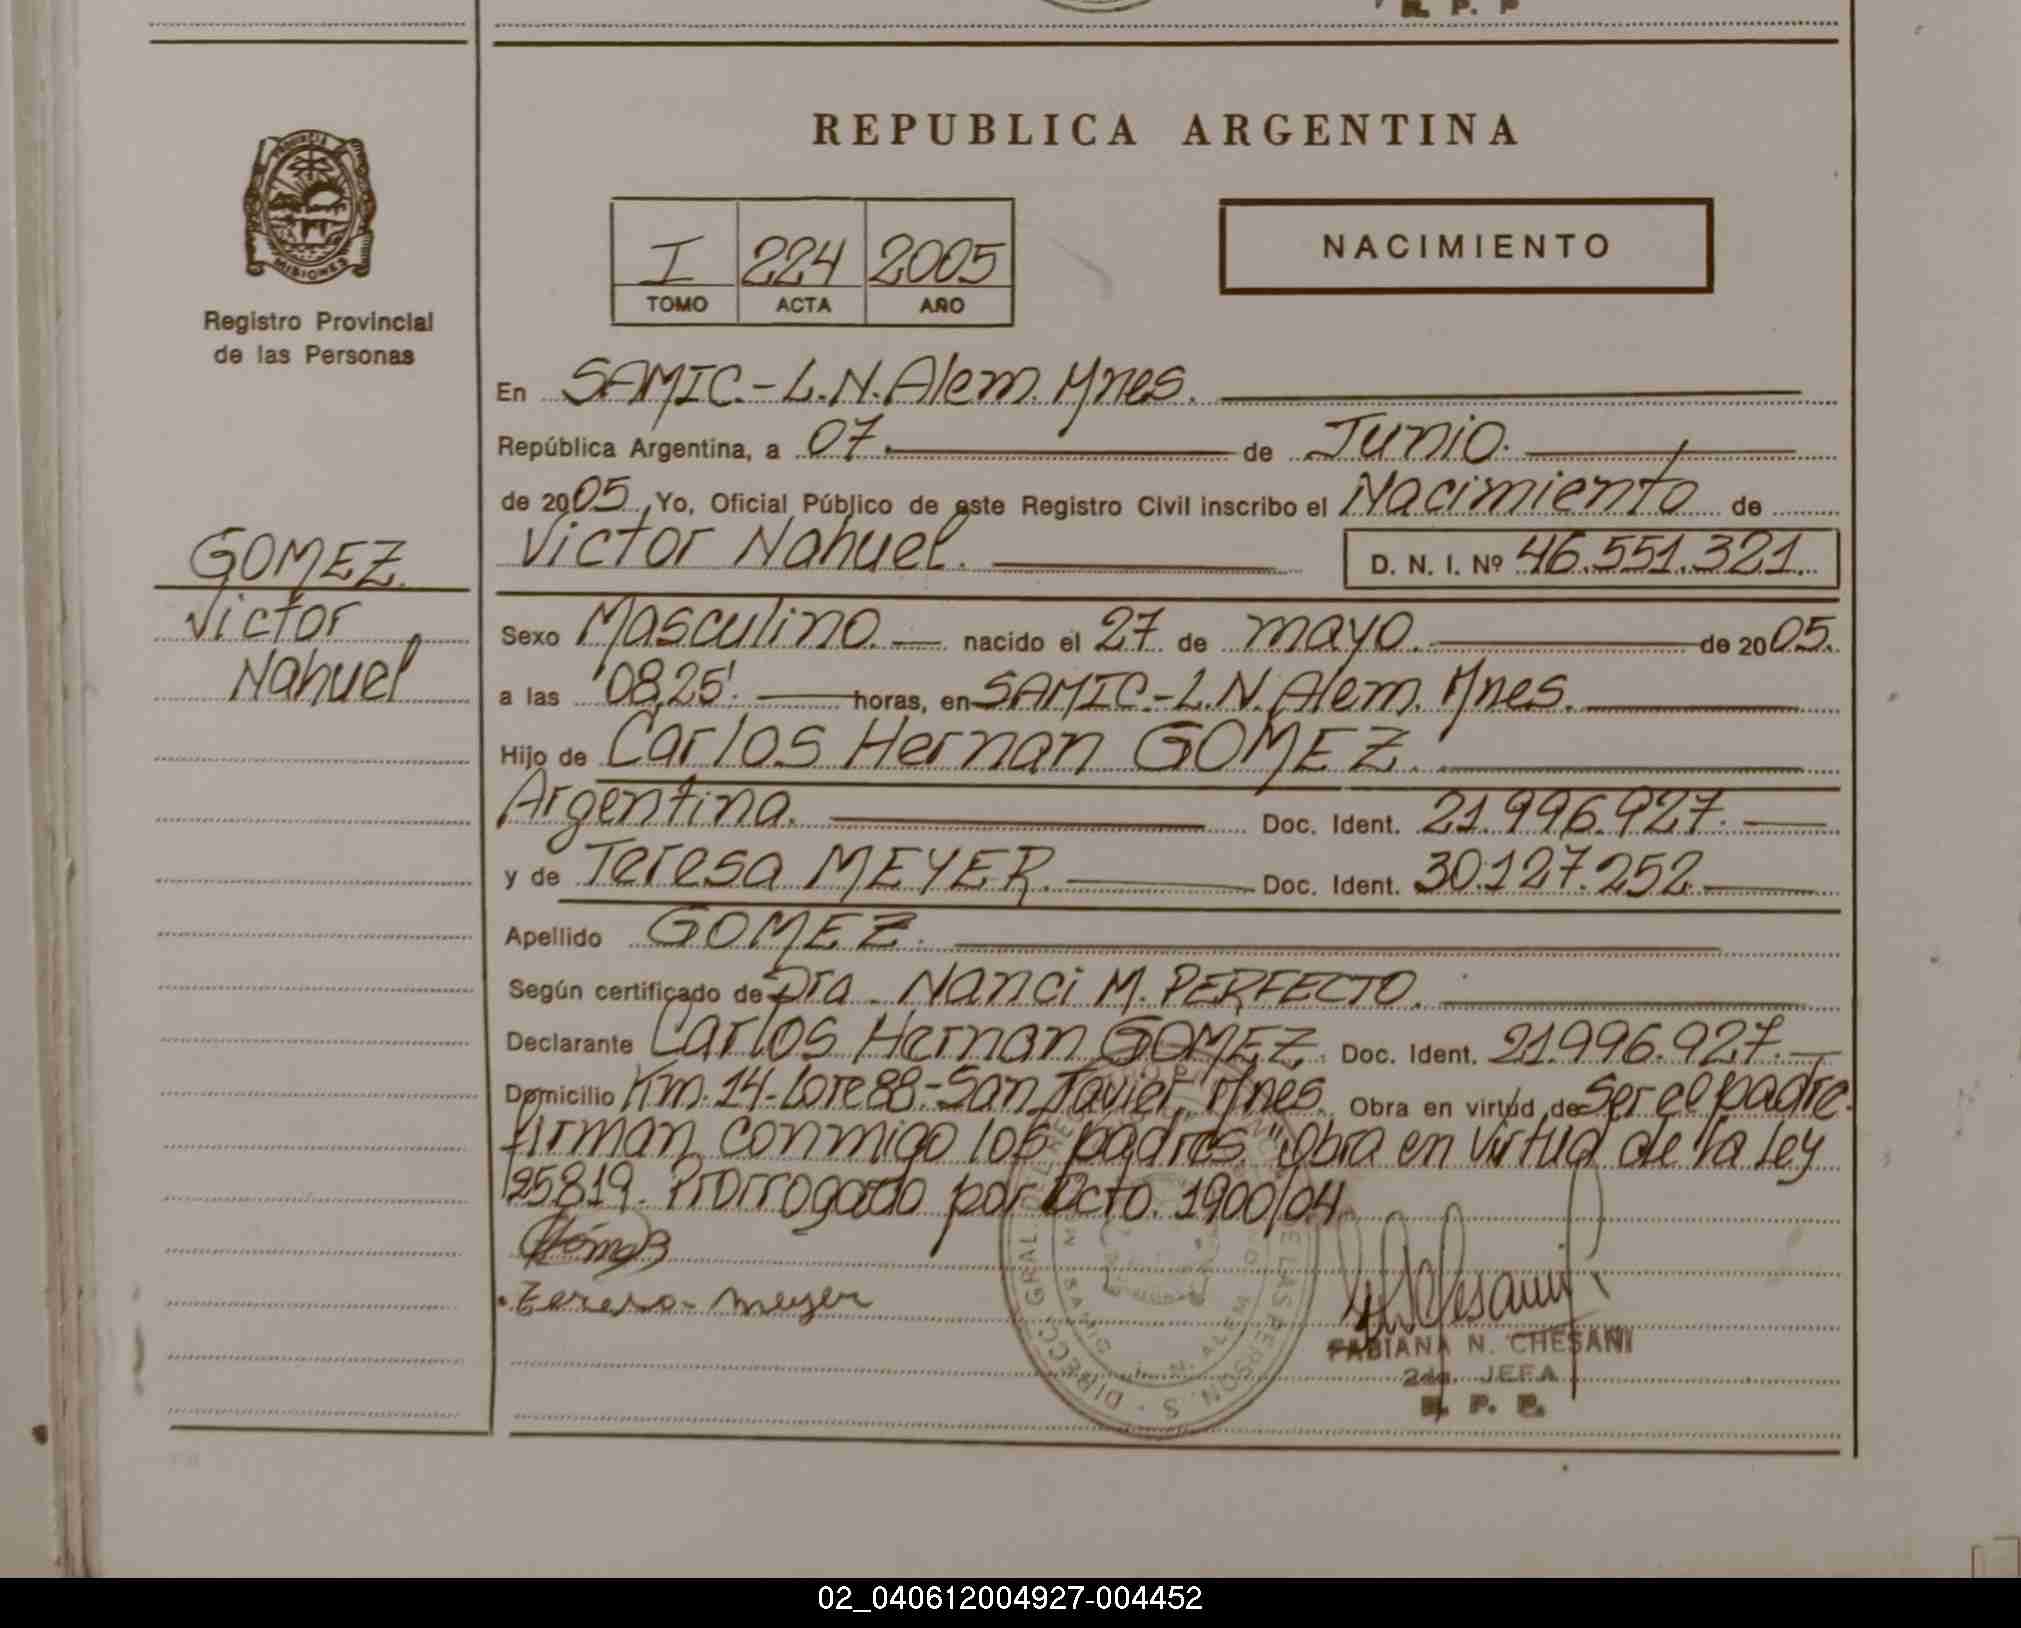 R. P. P
REPUBLICA ARGENTINA
PROVINCIA
MISIONES
Registro Provincial
de las Personas
I 224 2005
TOMO ACTA AÑO
NACIMIENTO
En SAMIC.-L.N.Alem. Mnes.
República Argentina, a 07. de Junio.
de 2005 Yo, Oficial Público de este Registro Civil inscribo el Nacimiento de
Victor Nahuel. D. N. I. Nº 46.551.321.
GOMEZ.
Victor
Nahuel
Sexo Masculino. nacido el 27 de mayo. de 2005.
a las '08,25'. horas, en SAMIC.-L.N.Alem. Mnes.
Hijo de Carlos Hernan GOMEZ.
Argentina. Doc. Ident. 21.996.927.
y de Teresa MEYER. Doc. Ident. 30.127.252
Apellido GOMEZ.
Según certificado de Dra. Nanci M. PERFECTO.
Declarante Carlos Hernan GOMEZ. Doc. Ident. 21.996.927.
Domicilio Km.14-Lote 88.-San Javier, Mnes. Obra en virtud de Ser el padre.
Firman conmigo los padres. "Obra en Virtud de la Ley
25819. Prorrogado por Dcto. 1900/04
Teresa - meyer
SAMIC L. N. ALEM
FABIANA N. CHESANI
2da. JEFA
R. P. P.
02_040612004927-004452